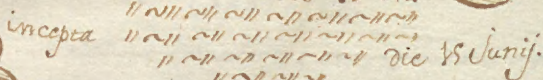 incepta
die 15 Junij.